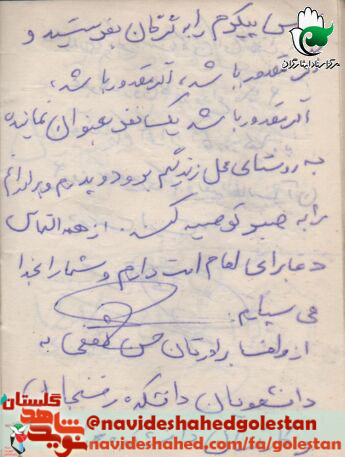 پس پیکرم را به گرگان بفرستید و
اگر مقدور باشد، اگر مقدور باشد،
اگر مقدور باشد یک نفر بعنوان نماینده
به روستای محل زندگیم برود و پدرم و برادرانم
را به صبر توصیه کند. از همه التماس
دعا برای امام امت دارم و شما را بخدا
می سپارم.
از طرف برادرتان حسن
به
دانشجویان دانشکده
مرکز اسناد ایثارگران
نوید شاهد گلستان
@navideshahedgolestan
navideshahed.com/fa/golestan